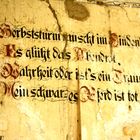 Herbststurm weckt im Linden
Es glüht das Abendrot
Wahrheit oder ist's ein Traum
Mein schwarzes Pferd ist tot